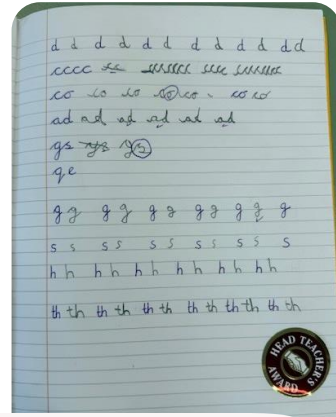 d d d d d d d d d d d d
cccc cc cccccc cccc ccccccc
co co co co co . co co
ad ad ad ad ad ad
gs gs gs
ge
g g g g g g g g g g g
s s s s s s s s s s s
h h h h h h h h h h h h
th th th th th th th th th th th th
HEAD TEACHER'S
AWARD